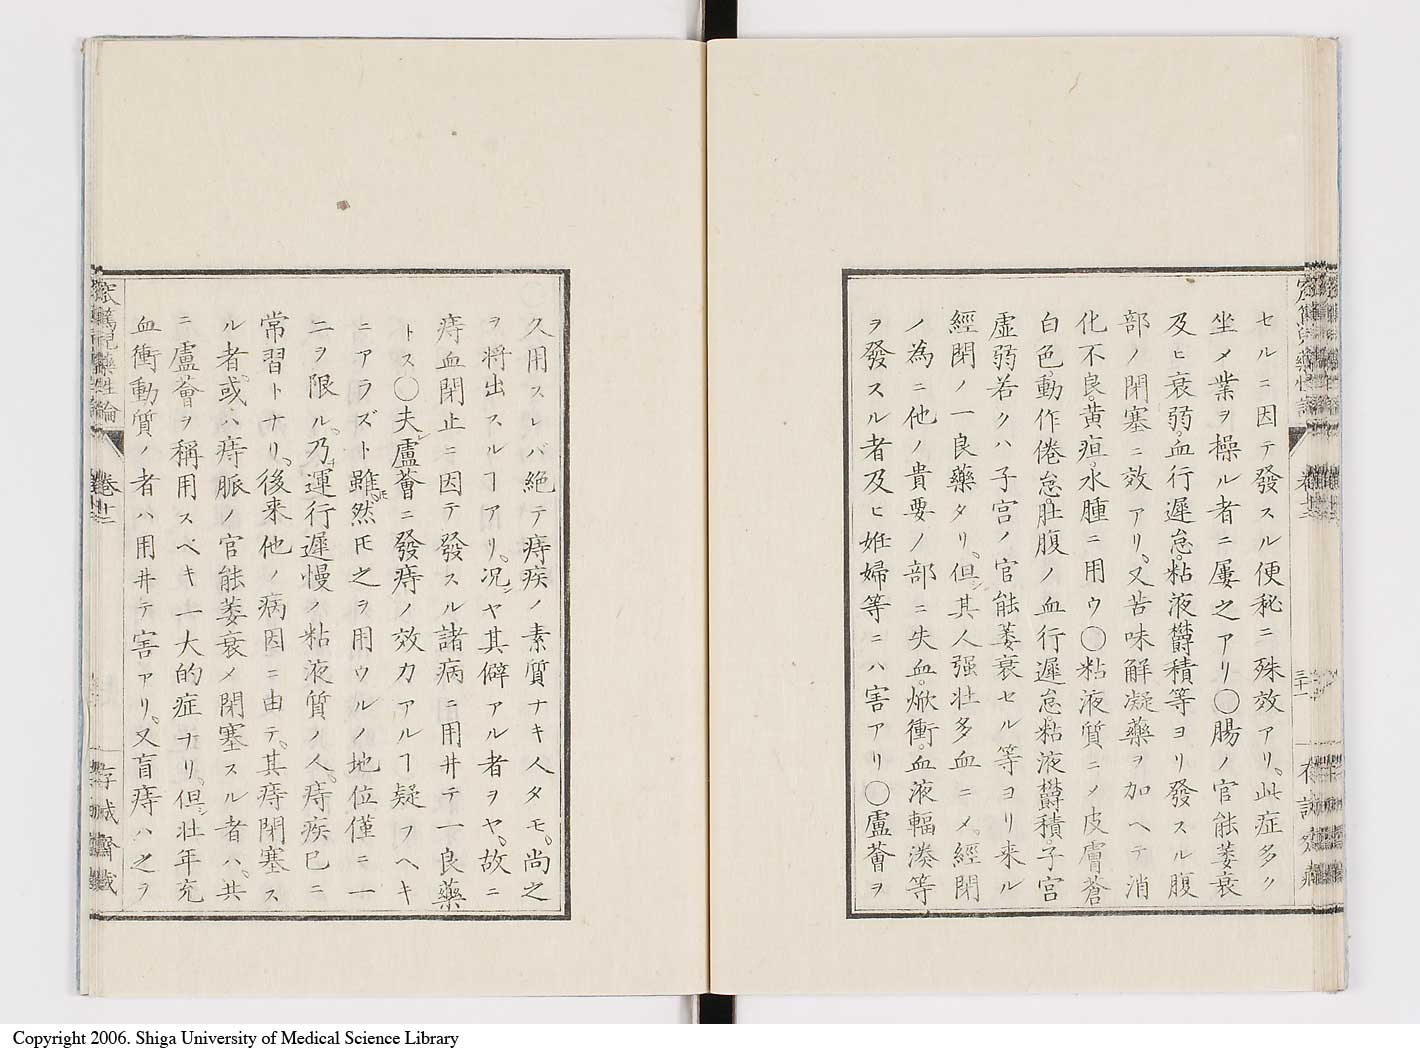 セルニ因テ發スル便秘ニ殊效アリ。此症多ク
坐メ業ヲ操ル者ニ屡之アリ〇腸ノ官能萎衰
及ヒ衰弱。血行遲怠。粘液欝積等ヨリ發スル腹
部ノ閉塞ニ效アリ。又苦味解凝藥ヲ加ヘテ消
化不良。黄疸。水腫ニ用ウ〇粘液質ニメ皮膚蒼
白色。動作倦怠。肚腹ノ血行遲怠粘液欝積。子宮
虚弱若クハ子宮ノ官能萎衰セル等ヨリ来ル
經閉ノ一良藥タリ。但シ其人强壮多血ニメ。經閉
ノ為ニ他ノ貴要ノ部ニ失血。焮衝。血液輻湊等
ヲ發スル者及ヒ姙婦等ニハ害アリ〇盧薈ヲ
久用スレバ絶テ痔疾ノ素質ナキ人タモ。尚之
ヲ將出スルヿアリ。况ヤ其僻アル者ヲヤ。故ニ
痔血閉止ニ因テ發スル諸病ニ用井テ一良藥
トス〇夫レ盧薈ニ發痔ノ效力アルヿ疑フヘキ
ニアラズト雖モ然𪜈之ヲ用ウルノ地位僅ニ一
二ヲ限ル。乃チ運行遲慢ノ粘液質ノ人。痔疾已ニ
常習トナリ。後来他ノ病因ニ由テ。其痔閉塞ス
ル者。或ハ痔脈ノ官能萎衰メ閉塞スル者ハ。共
ニ盧薈ヲ稱用スベキ一大的症ナリ。但シ壮年充
血衝動質ノ者ハ用井テ害アリ。又盲痔ハ之ヲ
卷十二
三十一
卷十二